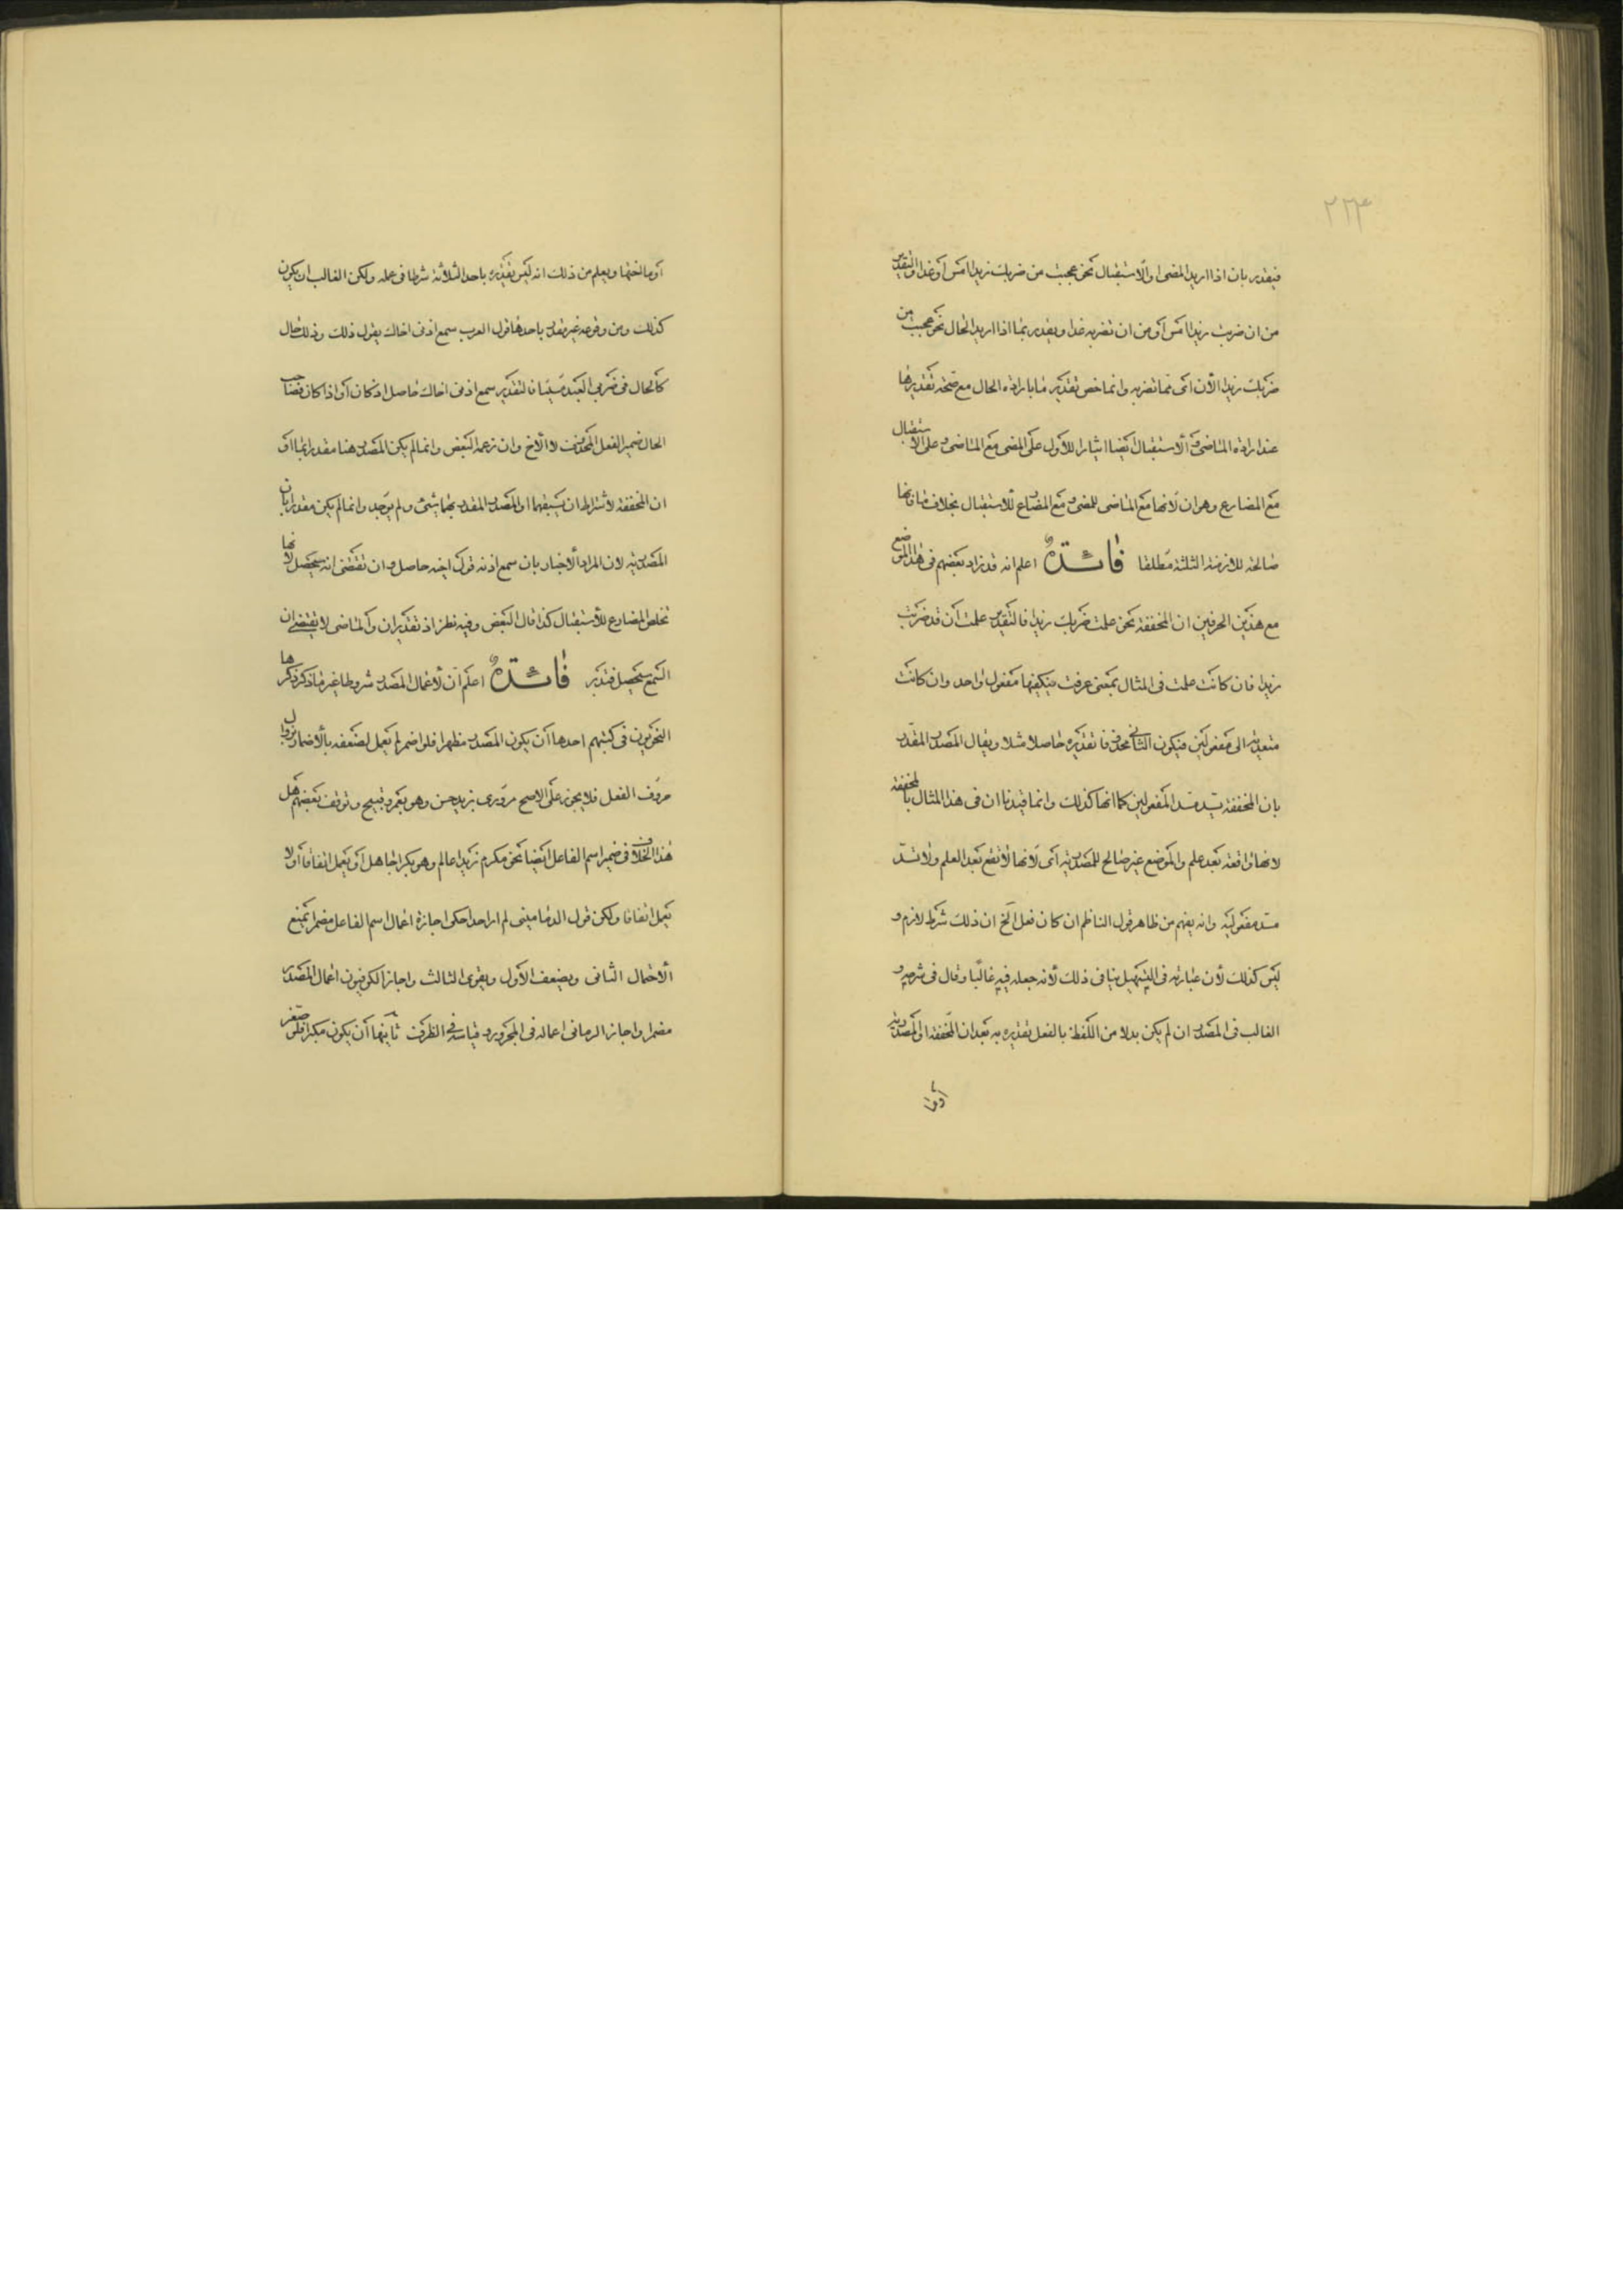 ٢٢٣
فيقدر بان اذا اريد المضى او الاستقبال نحو عجبت من ضربك زيدا امس او غدا والتقدير
من ان ضربت زيدا امس او من ان تضربه غدا ويقدر بما اذا اريد الحال نحو عجبت من
ضربك زيدا الأن اى مما تضربه وانما خص تقدير ما بارادة الحال مع صحة تقديرها
عند ارادة الماضى والاستقبال ايضا ايثارا للأول على المضى مع الماضى وعلى الاستقبال
مع المضارع وهو ان لانها مع الماضى للمضى ومع المضارع للاستقبال بخلاف ما فانها
صالحة للازمنة الثلثة مطلقا فائدة اعلم انه قد زاد بعضهم فى هذا الموضع
مع هذين الحرفين ان المخففة نحو علمت ضربك زيدا فالتقدير علمت أن قد ضربت
زيدا فان كانت علمت فى المثال بمعنى عرفت فيكفيها مفعول واحد وان كانت
متعدية الى مفعولين فيكون الثانى محذوفا تقديره حاصلا مثلا ويقال المصدر المقدر
بان المخففة يسد مسد المفعولين كما انها كذلك وانما قيدنا ان فى هذا المثال بالمخففة
لانها واقعة بعد علم والموضع غير صالح للمصدرية اى لانها لا تقع بعد العلم ولا تسد
مسد مفعوليه وانه يفهم من ظاهر قول الناظم ان كان فعل الخ ان ذلك شرط لازم و
ليس كذلك لأن عبارته فى التسهيل ينافى ذلك لأنه جعله فيه غالبا وقال فى شرحه و
الغالب فى المصدر ان لم يكن بدلا من اللفظ بالفعل تقديره به بعد ان المخففة او المصدرية
او ما
او ما اختها ويعلم من ذلك انه ليس تقديره باحد الثلاثة شرطا فى عمله ولكن الغالب ان يكون
كذلك ومن وقوعه غير مقدر باحدها قول العرب سمع اذنى اخاك يقول ذلك وذلك حال
كالحال فى ضربي العبد مسيئا فالتقدير سمع اذنى اخاك حاصل اذ كان أو اذا كان فصاحب
الحال ضمير الفعل المحذوف لا الأخ وان زعمه البعض وانما لم يكن المصدر هنا مقدرا بما او
ان المخففة لاشتراط ان يسبقهما او المصدر المقدر بهما شئ ولم يوجد وانما لم يكن مقدرا بان
المصدرية لان المراد الأخبار بان سمع اذنه قول اخيه حاصل وان تقتضى انه سيحصل لانها
تخلص المضارع للأستقبال كذا قال البعض وفيه نظر اذ تقدير ان والماضى لا يقتضى ان
السمع سيحصل فتدبر فائدة اعلم ان لأعمال المصدر شروطا غير ما ذكر ذكرها
النحويون فى كتبهم احدها أن يكون المصدر مظهرا فلو اضمر لم يعمل لضعفه بالأضمار بزوال
حروف الفعل فلا يجوز على الاصح مرورى بزيد حسن وهو بعمرو قبيح وتوقف بعضهم هل
هذا الخلاف فى ضمير اسم الفاعل ايضا نحو مكرم زيدا عالم وهو بكرا جاهل أو يعمل اتفاقا أو لا
يعمل اتفاقا ولكن قول الدمامينى لم ار احدا حكى اجازة اعمال اسم الفاعل مضمرا يمنع
الاحتمال الثانى ويضعف الأول ويقوى الثالث واجاز الكوفيون اعمال المصدر
مضمرا واجاز الرمانى اعماله فى المجرور وقياسه فى الظرف ثانيها أن يكون مكبرا فلو صغر